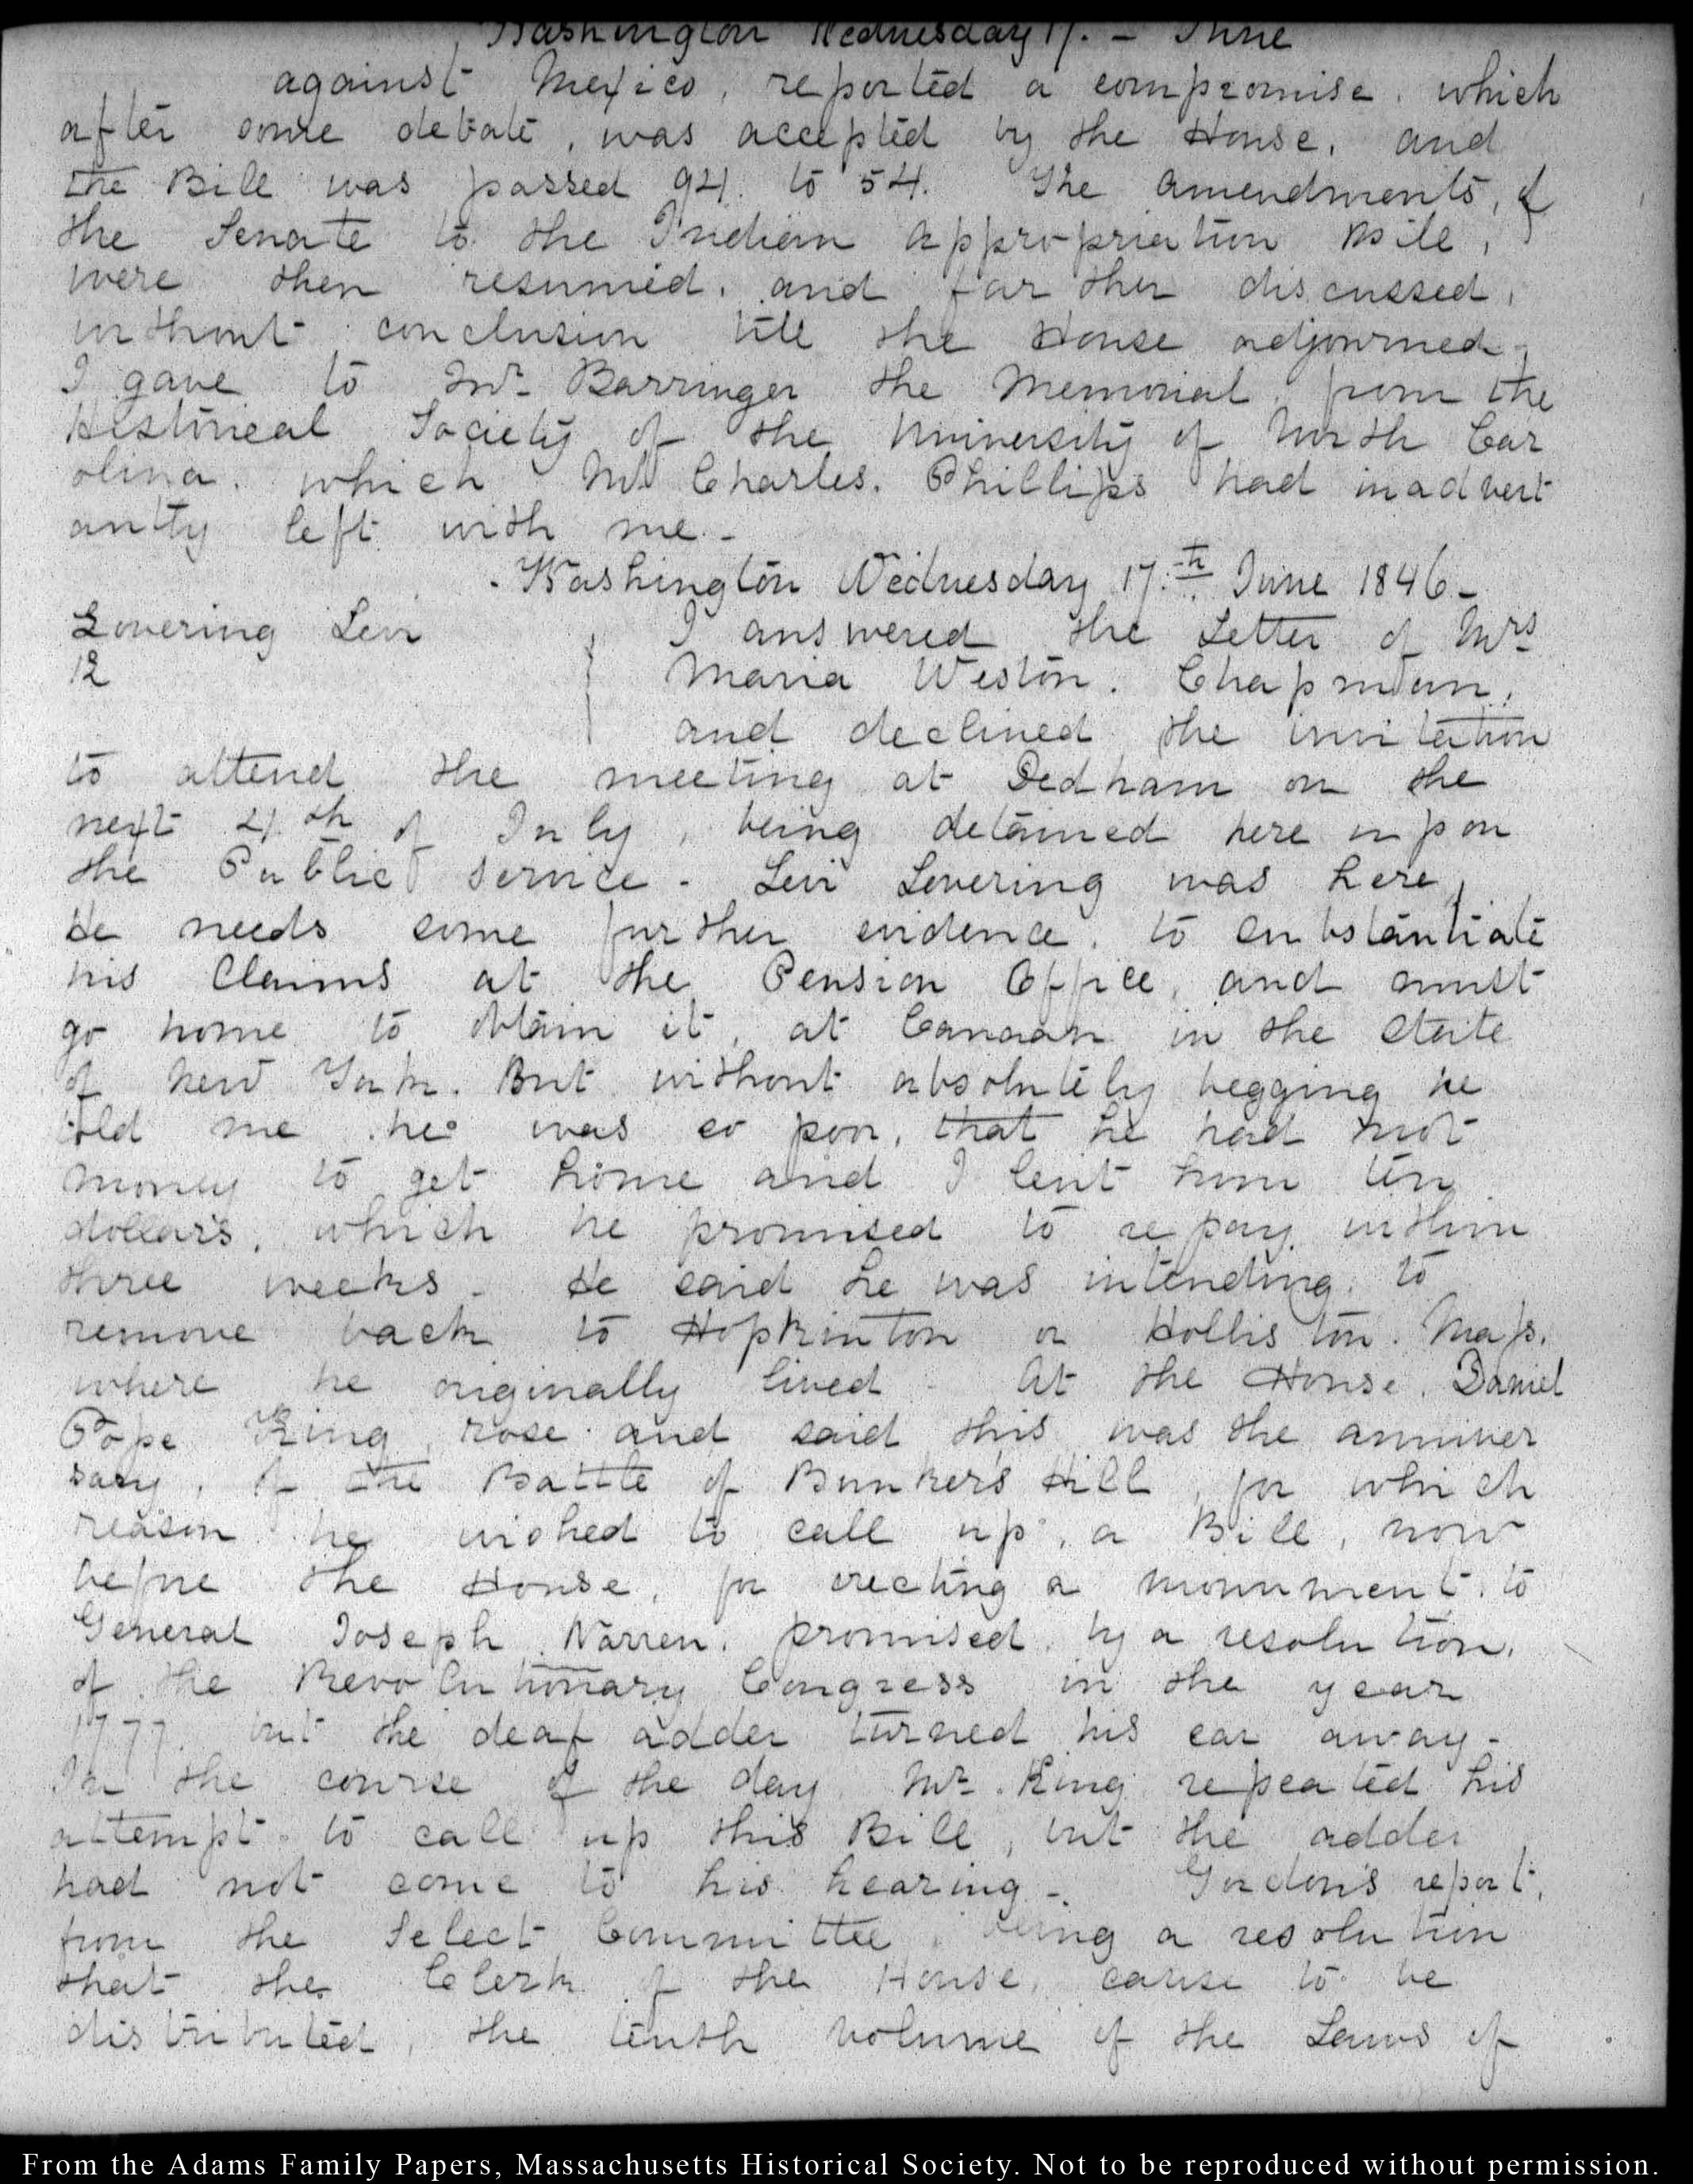 Washington Wednesday 17. - June
against Mexico, reported a compromise, which
after some debate, was accepted by the House, and
the Bill was passed 94. to 54. The amendments, of
the Senate to the Indian appropriation Bill,
were then resumed, and farther discussed,
without conclusion till the House adjourned,
I gave to Mr. Barringer the Memorial, from the
Historical Society of the University of North Car
olina, which Mr Charles. Phillips had inadvert
antly left with me -
Washington Wednesday 17.th June 1846 -
Lovering Levi
12
I answered the Letter of Mrs
Maria Weston. Chapman,
and declined the invitation
to attend the meeting at Dedham on the
next 4th of July, being detained here upon
the Public service - Levi Lovering was here,
He needs some further evidence, to substantiate
his Claims at the Pension Office, and must
go home to obtain it, at Canaan in the State
of New York. But without absolutely begging he
told me he was so poor, that he had not
money to get home and I lent him ten
dollars, which he promised to repay within
three weeks - He said he was intending to
remove back to Hopkinton or Holliston. Mass.
where he originally lived - At the House, Daniel
Pope King rose and said this was the anniver
sary, of the Battle of Bunker's Hill, for which
reason he wished to call up, a Bill, now
before the House, for erecting a monument, to
General Joseph Warren, promised, by a resolution,
of the Revolutionary Congress in the year
1777. but the deaf adder turned his ear away -
In the course of the day Mr. King repeated his
attempt to call up this Bill, but the adder
had not come to his hearing - Gordon's report,
from the Select Committee, being a resolution
that the Clerk of the House, cause to be
distributed, the tenth volume of the Laws of
From the Adams Family Papers, Massachusetts Historical Society. Not to be reproduced without permission.